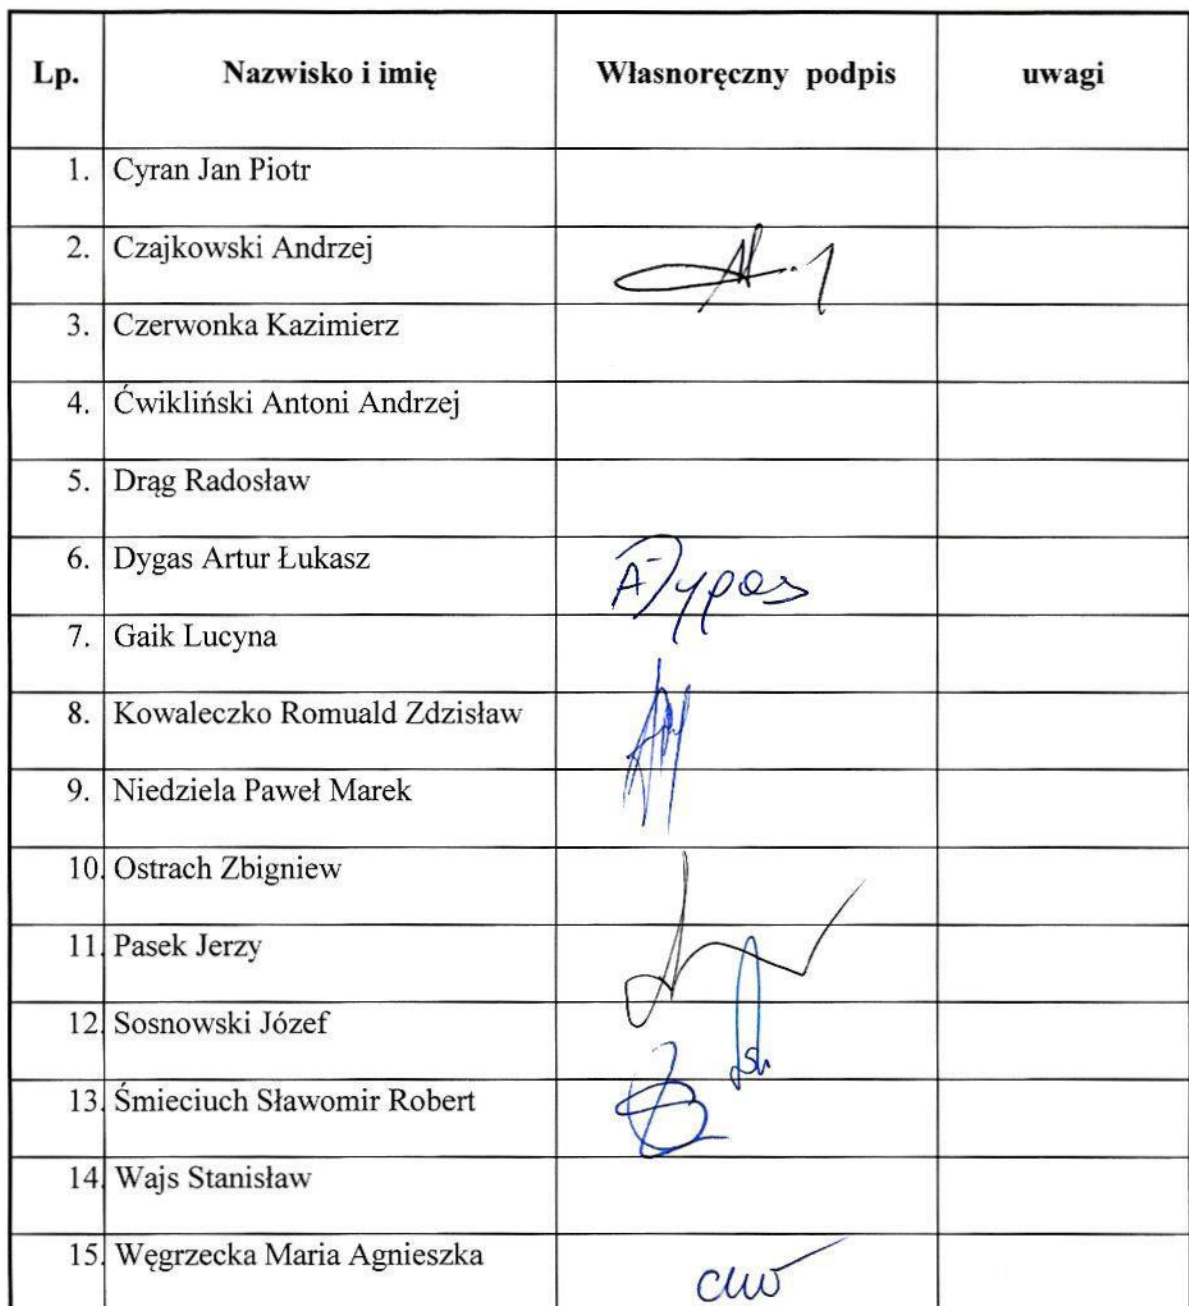 Lp. Nazwisko i imię Własnoręczny podpis uwagi
1. Cyran Jan Piotr
2. Czajkowski Andrzej
3. Czerwonka Kazimierz
4. Ćwikliński Antoni Andrzej
5. Drąg Radosław
6. Dygas Artur Łukasz
7. Gaik Lucyna
8. Kowaleczko Romuald Zdzisław
9. Niedziela Paweł Marek
10. Ostrach Zbigniew
11. Pasek Jerzy
12. Sosnowski Józef
13. Śmieciuch Sławomir Robert
14. Wajs Stanisław
15. Węgrzecka Maria Agnieszka